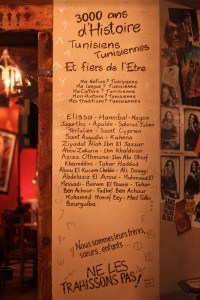 3000 ans
d'Histoire
Tunisiens
Tunisiennes
Et fiers de l'Etre
Ma Nation? Tunisienne
Ma Langue? Tunisienne
Ma Culture? Tunisienne
Mon Histoire? Tunisienne
Mes Traditions? Tunisiennes
Elissa - Hannibal - Magon
Jugurtha - Apulée - Salvius Julien
Tertulien - Saint Cyprien
Saint Augustin - Kahena
Ziyadat Allah Ibn El
Ibn Khaldoun
Aziza Othmana - Ibn Abi Dhiaf
Khereddine - Tahar Haddad
Abou El Kacem Chebbi - Ali Douagi
Abdelaziz El Aroui - Mahmoud
Messadi - Beiram El Tounsi - Tahar
Ben Achour - Fadhel Ben Achour
Mohamed Moncef Bey - Med Ali
Bourguiba
Nous sommes leurs frères,
sœurs, enfants...
NE LES
TRAHISSONS PAS!